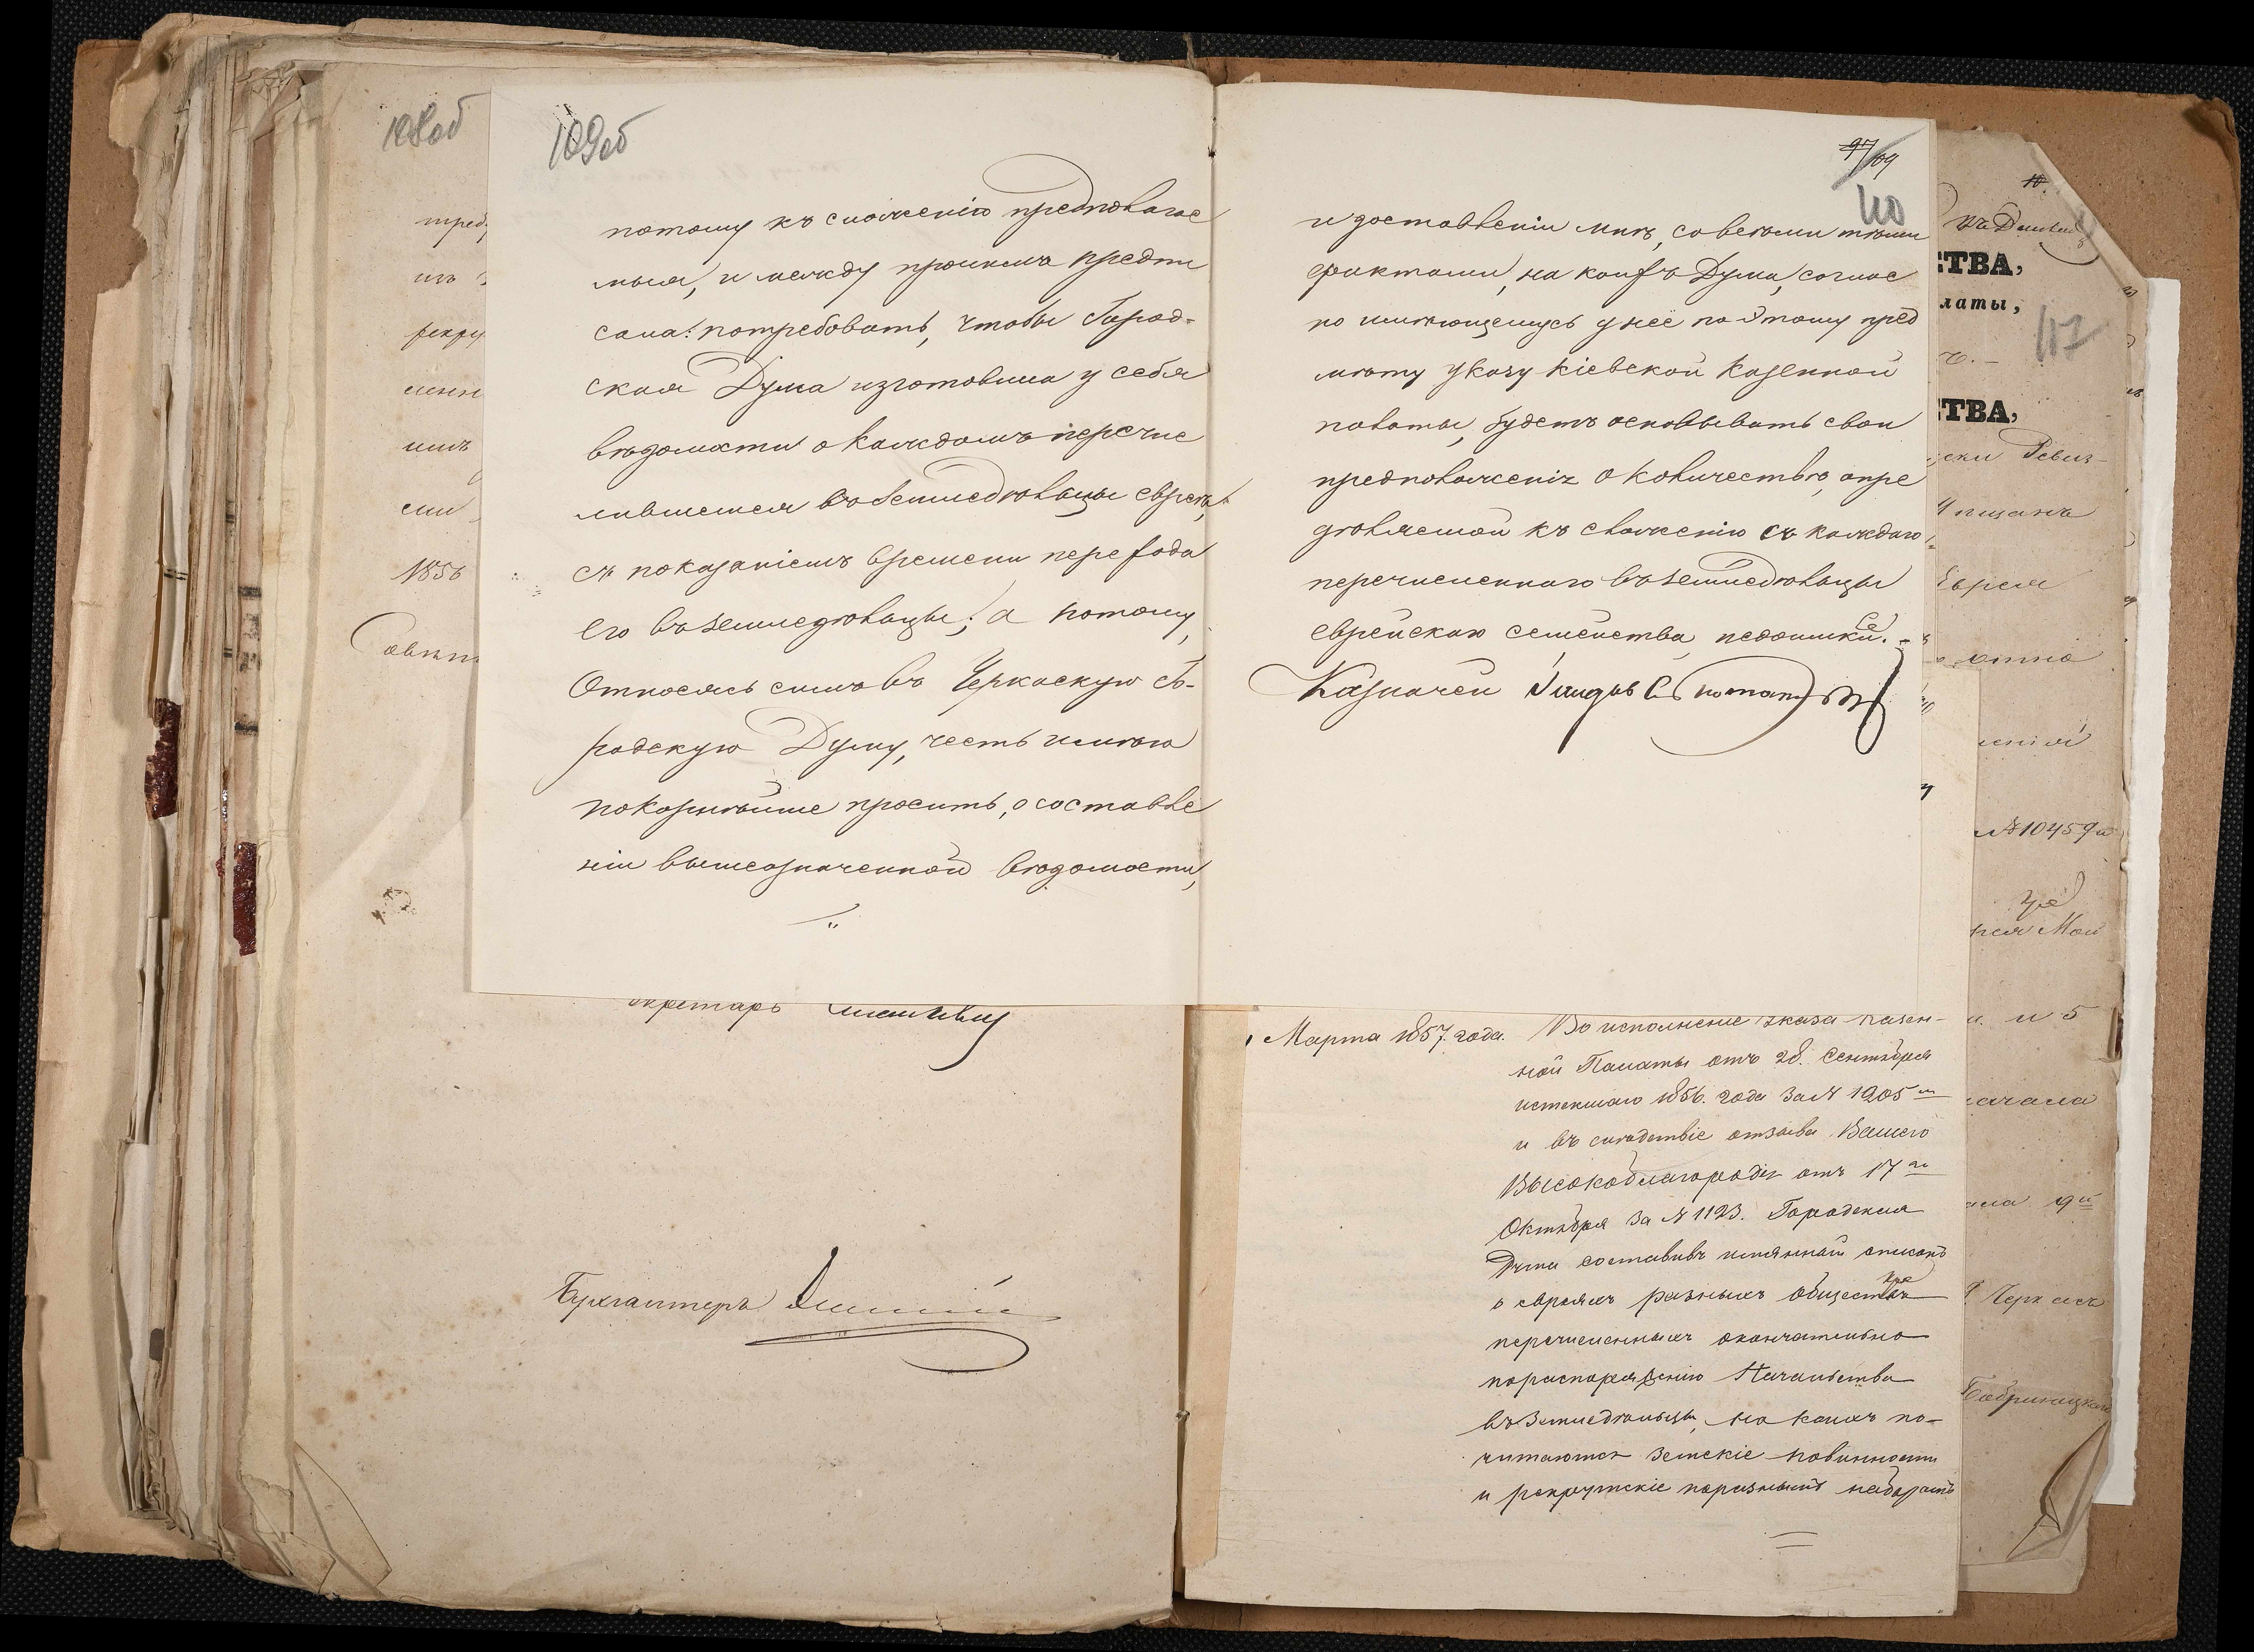 108об
109об
потому къ сложенію предполагае
мыя, и между прочимъ предпи
сала: потребовать, чтобы Город-
ская Дума изготовила у себя
вѣдомости о каждомъ перечис
лившемся въ земледѣльцы евреѣ,
съ показаніемъ времени перехода
его въ земледѣльцы; а потому,
Относясь симъ въ Черкаскую Го-
родскую Думу, честь имѣю
покорнѣйше просить, о составле
ніи вышеозначенной вѣдомости,
97/109
110
и доставленіи мнѣ, со всѣми тѣми
фактами, на коихъ Дума, соглас
но имѣющемуся у нее по этому пред
мѣту указу Кіевской Казенной
палаты, будетъ основывать свои
предположенія о количествѣ, опре
дѣляемой къ сложенію съ каждаго
перечисленнаго въ земледѣльцы
еврейскаго семейства, недоимки.
Казначей
1856
Секретарь
Бухгалтеръ
Марта 1857. года. Во исполненіе указа казен-
ной Палаты отъ 28. Сентября
истекшаго 1856. года за № 1205
и въ слѣдствіе отзыва Вашего
Высокоблагородія отъ 17го
Октября за № 1123. Городская
Дума составивъ имянной списокъ
о евреяхъ разныхъ обществъ
перечисленныхъ окончательно
по распоряженію Начальства
въ Земледѣльцы, на коихъ по-
читаются земскіе повинности
и рекрутскіе по разнымъ наборамъ
СТВА,
латы,
117
СТВА,
Ревиз-
мѣщанъ
Еврея
№ 10459
и 5
начала
9й
Черкасъ
Бобринацкаго